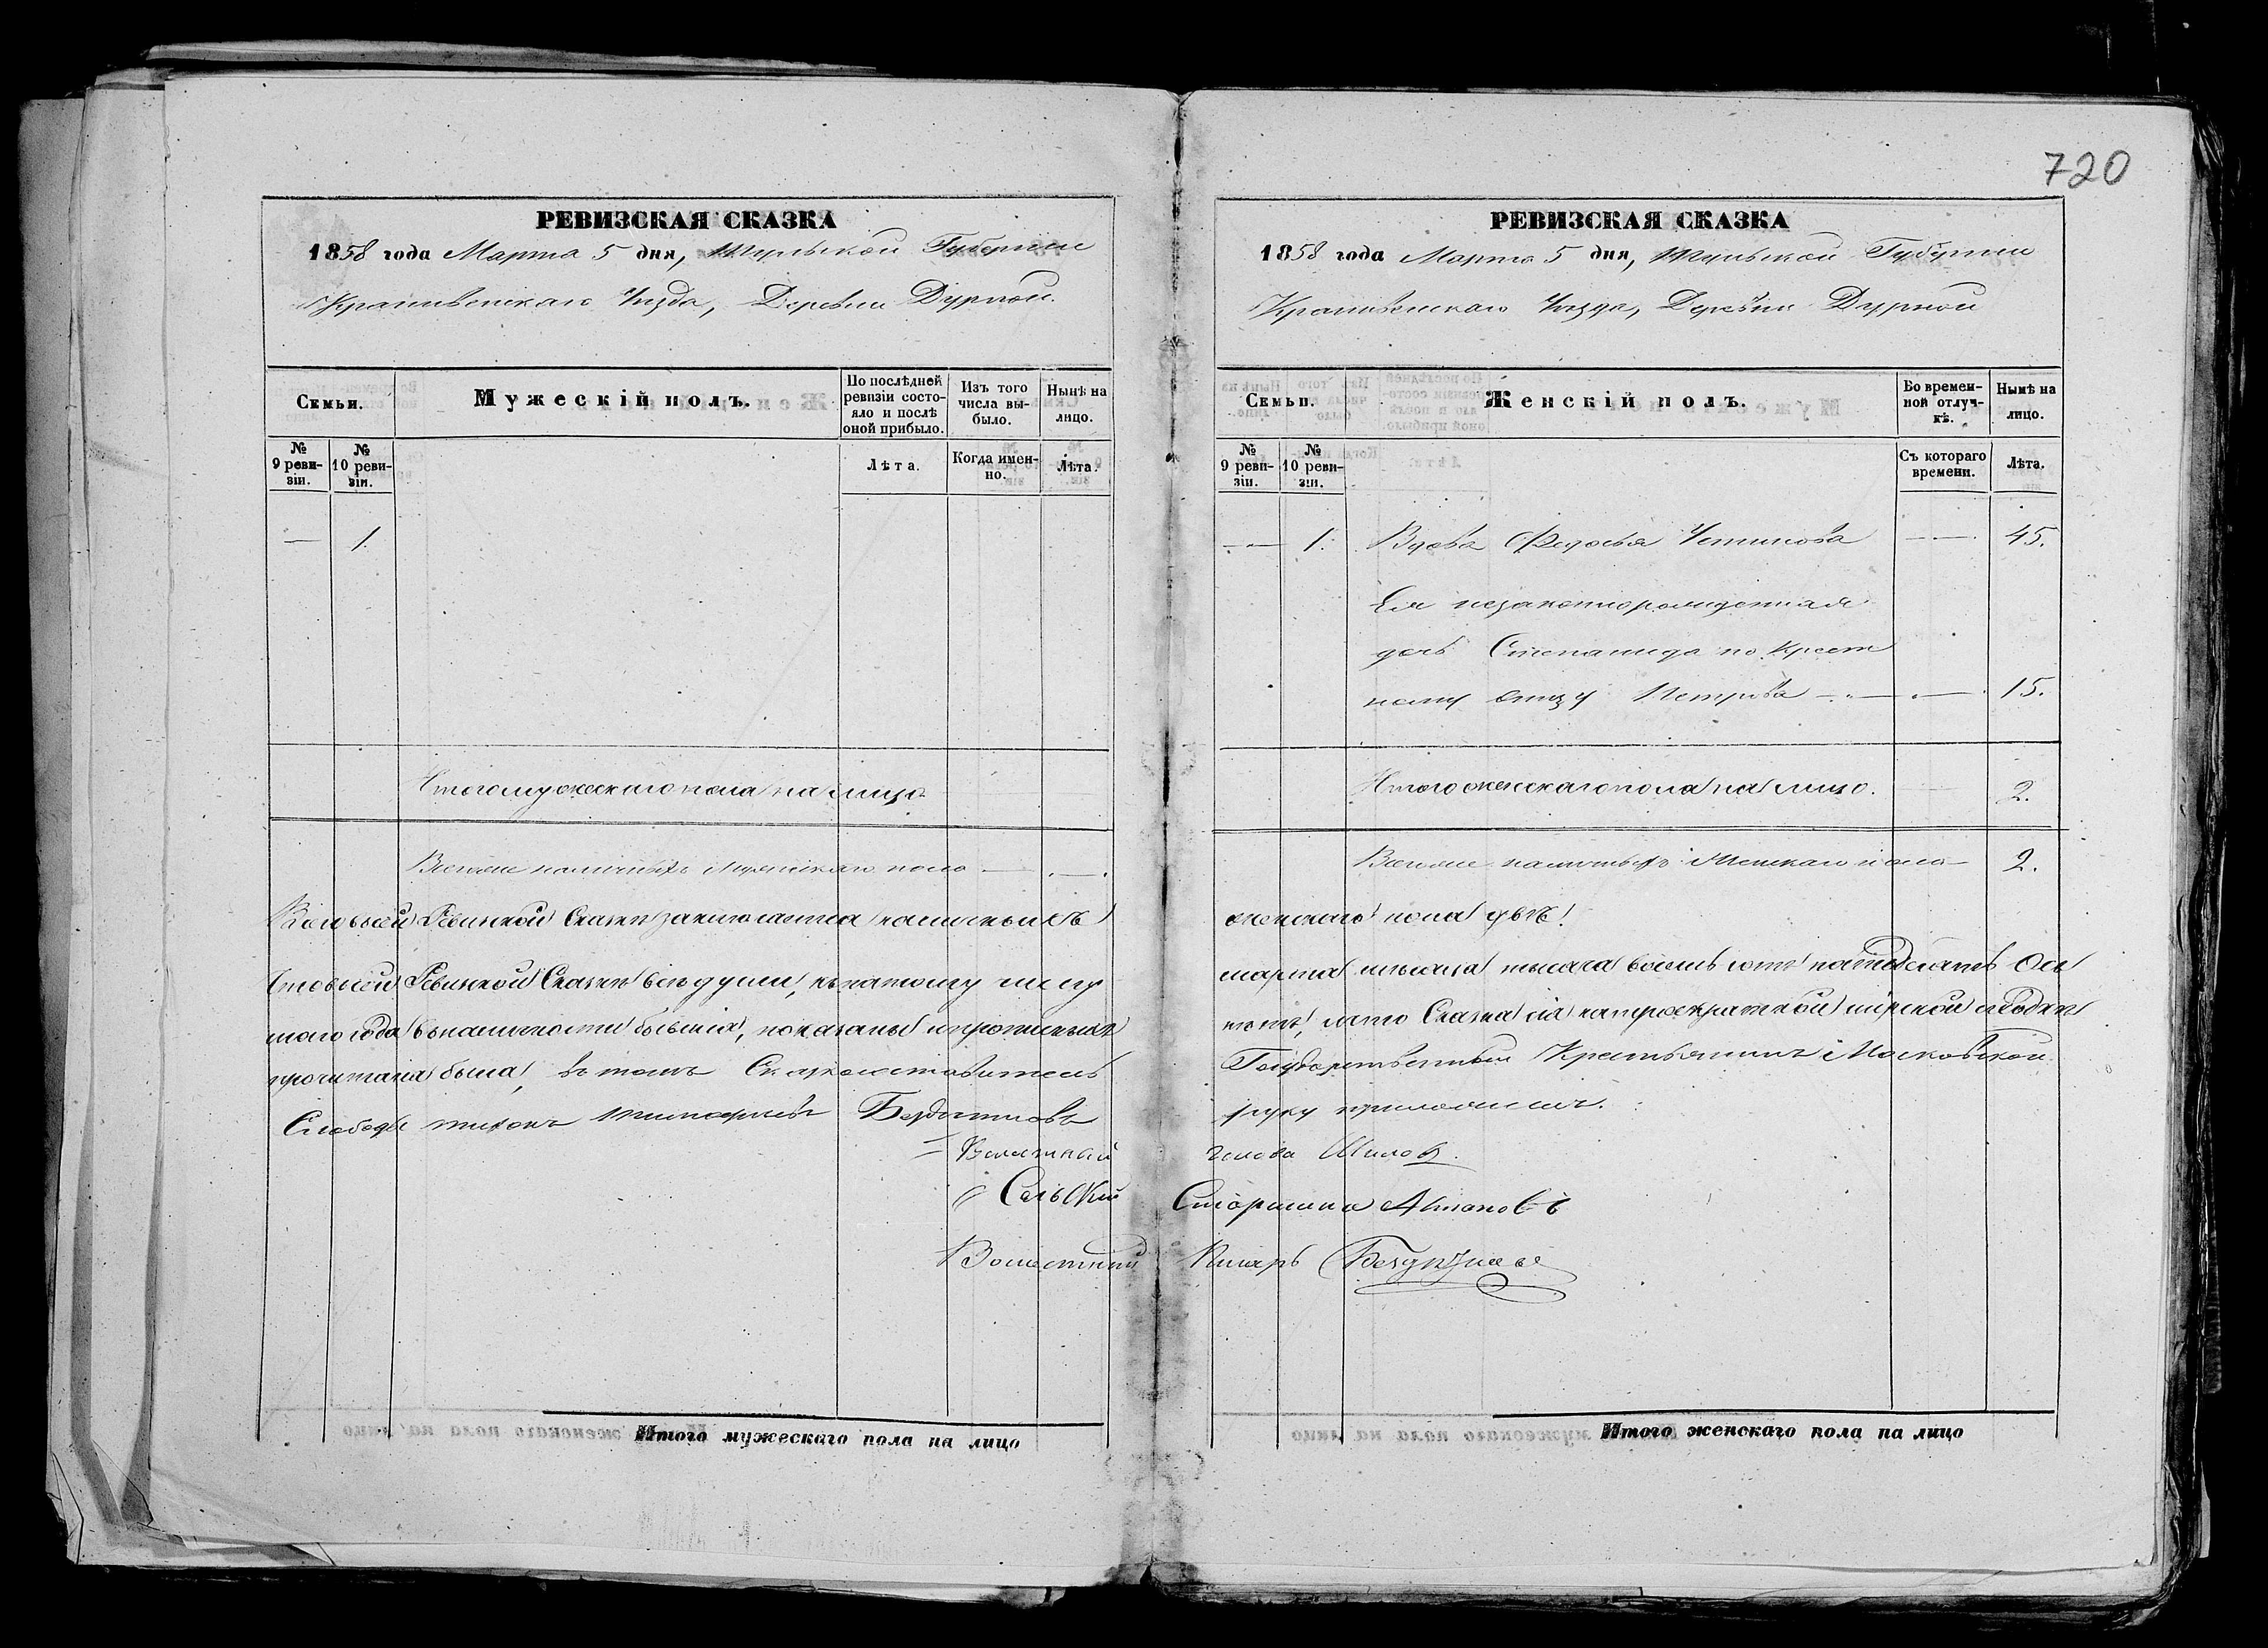 720
РЕВИЗСКАЯ СКАЗКА
1858 года Марта 5 дня, Тульской Губернии
Крапивенскаго Уезда, Деревни Дурной.
Семьи.
Мужескій полъ.
По послѣдней ревизіи состояло и послѣ оной прибыло.
Изъ того числа выбыло.
Нынѣ на лицо.
№ 9 ревизіи.
№ 10 ревизіи.
Лѣта.
Когда именно.
Лѣта.
— 1.
Итого мужескаго пола на лицо
Всего наличныхъ Мужескаго пола — . — .
Въ сей Ревизской Сказкѣ заключается наличныхъ
Ревизской Сказки всѣ души, къ
того года въ наличности бывшія, показаны и
прочитана была, въ томъ Сказкосоставитель
Слободы Тихонъ
Волостный
Сельскій
Волостный
Итого мужескаго пола на лицо
РЕВИЗСКАЯ СКАЗКА
1858 года Марта 5 дня, Тульской Губернии
Крапивенскаго Уезда, Деревни Дурной
Семьи.
Женскій полъ.
Во временной отлучкѣ.
Нынѣ на лицо.
№ 9 ревизіи.
№ 10 ревизіи.
Съ котораго времени.
Лѣта.
— 1. Вдова Федосья — 45.
Ея незаконнорожденная
дочь Степанида по Крест
ному отцу Петрова — — 15.
Итого женскаго пола на лицо. — 2.
Всего наличныхъ Женскаго пола — 2.
женскаго пола двѣ.
марта мѣсяца тысяча восемь сотъ пятьдесятъ
что Сказка сія на троекратной мірской сходкѣ
Государственный Крестьянинъ Московской
руку приложилъ.
голова Шилов.
Старшина
Писарь
Итого женскаго пола на лицо